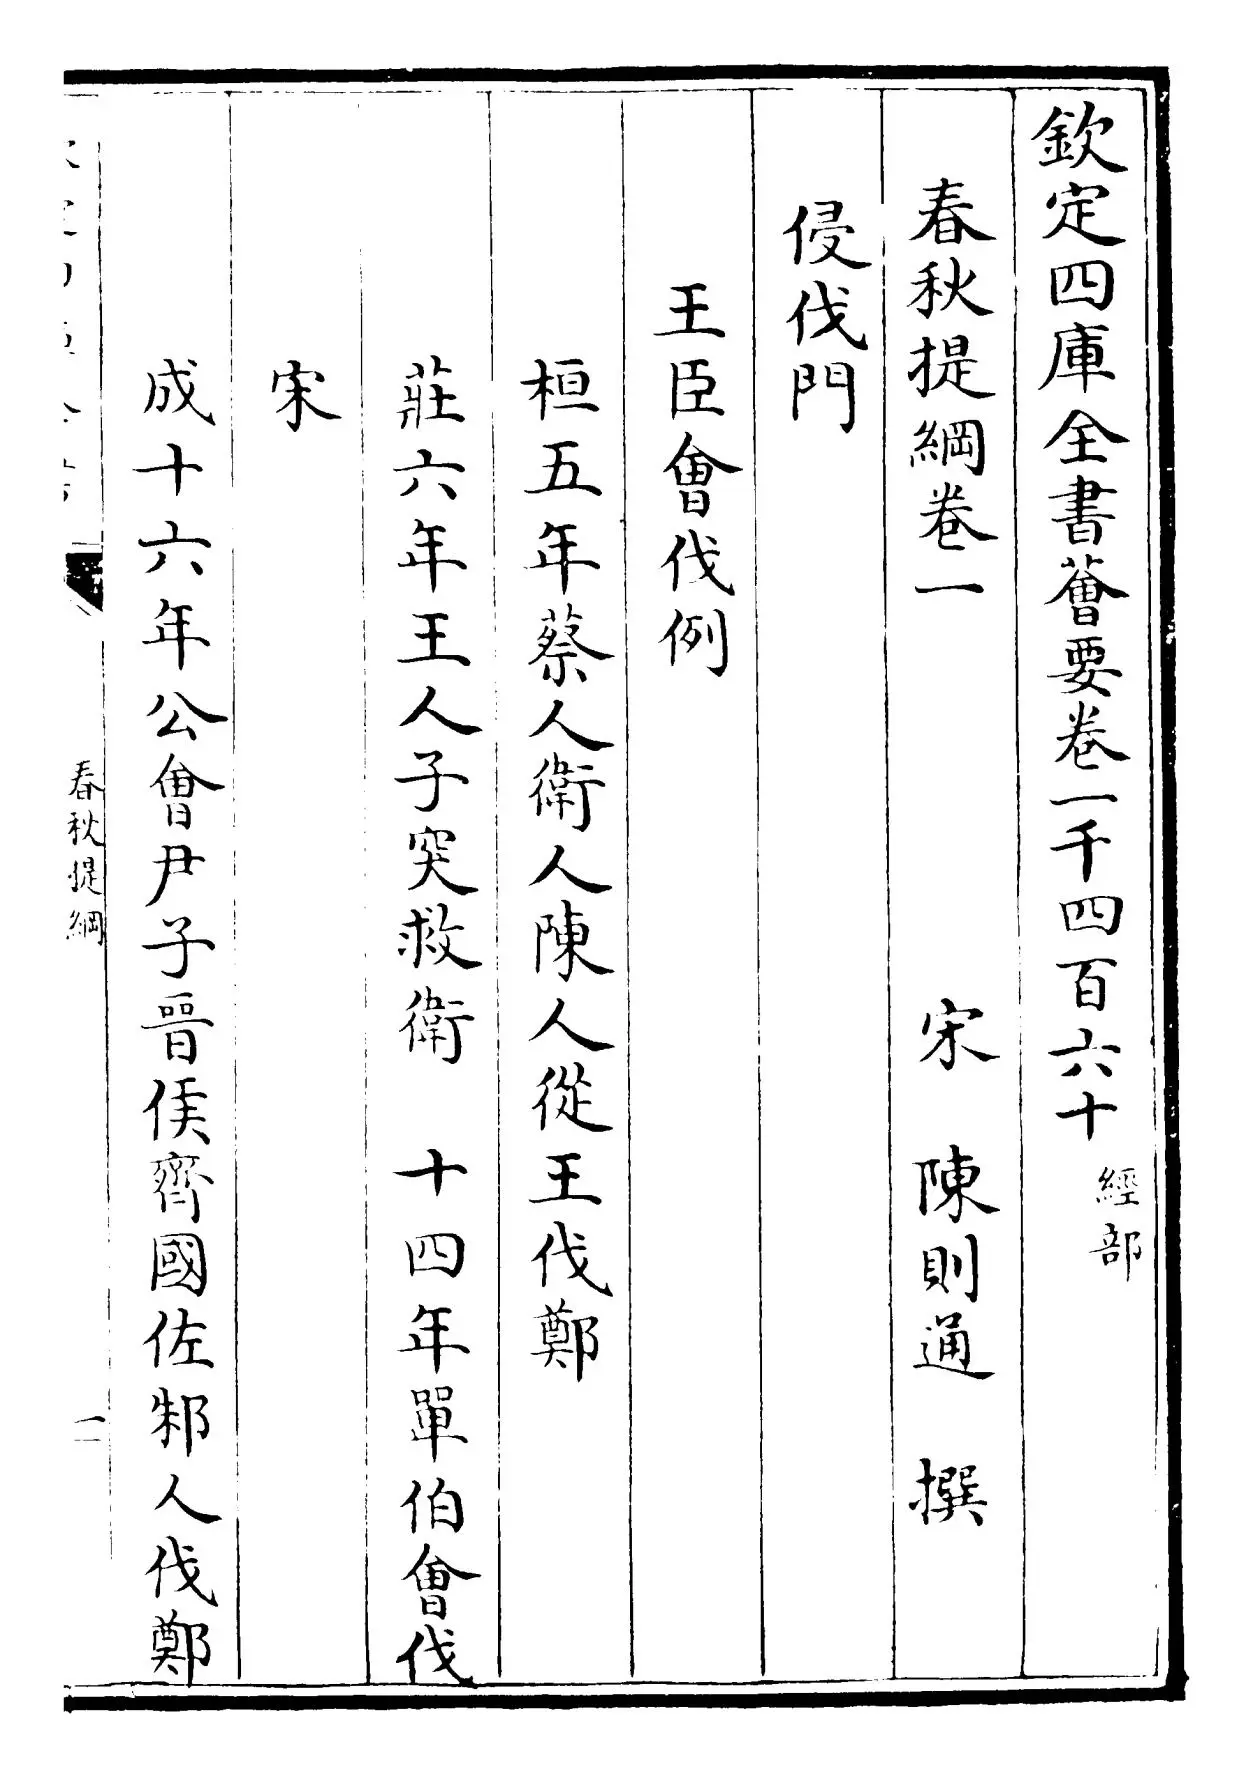 欽定四庫全書薈要卷一千四百六十 經部
春秋提綱卷一 宋 陳則通 撰
侵伐門
王臣會伐例
桓五年蔡人衛人陳人從王伐鄭
莊六年王人子突救衛 十四年單伯會伐
宋
成十六年公會尹子晉侯齊國佐邾人伐鄭
春秋提綱
一